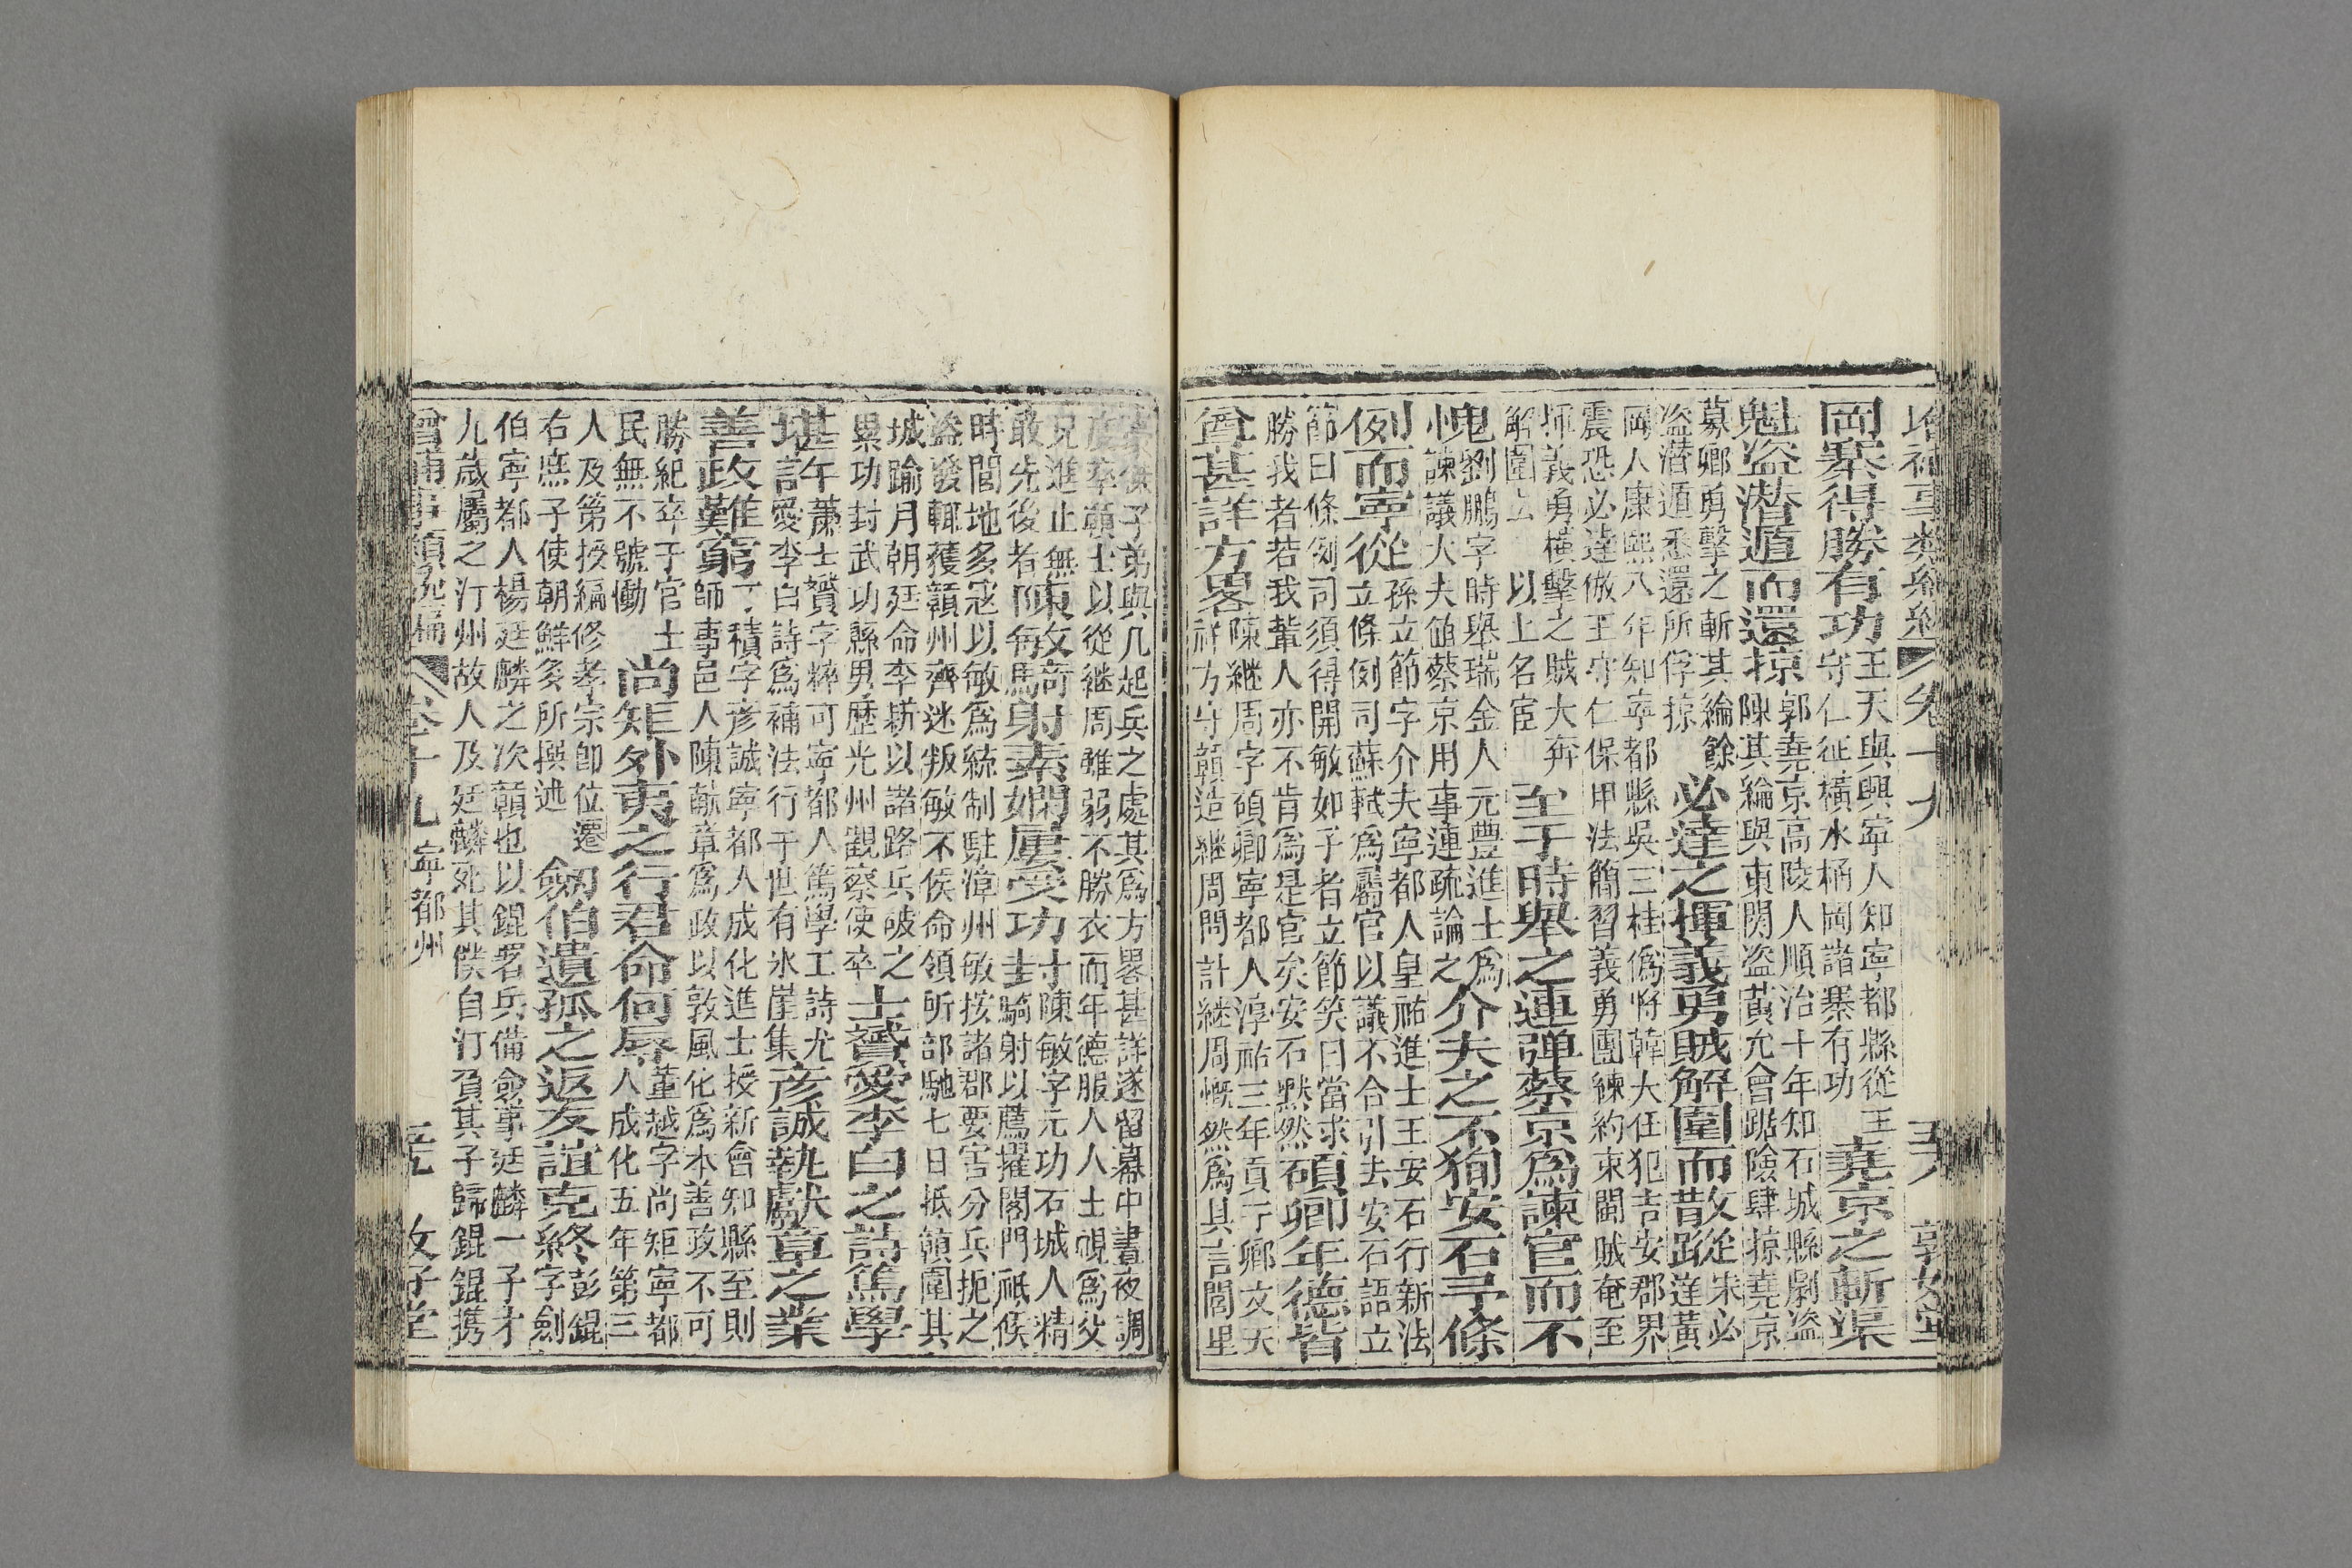 增補事類統編 卷十九 敦好堂
岡寨得勝有功
王天與興寧人知寧都縣從王
守仁征橫水桶岡諸寨有功
堯京之斬渠
魁盜潛遁而還掠
郭堯京高陵人順治十年知石城縣劇盜
陳其綸與東閔盜黃允會踞險肆掠堯京
募鄉勇擊之斬其綸餘
盜潛遁悉還所俘掠
必達之揮義勇賊解圍而散蹤
朱必
達黃
岡人康熙八年知寧都縣吳三桂僞將韓大任犯吉安郡界
震恐必達倣王守仁保甲法簡習義勇團練約束閩賊奄至
揮義勇橫擊之賊大奔
解圍去 以上名宦
至于時舉之連彈蔡京爲諫官而不
愧
劉鵬字時舉瑞金人元豐進士爲
諫議大夫値蔡京用事連疏論之
介夫之不狥安石予條
例而寧從
孫立節字介夫寧都人皇祐進士王安石行新法
立條例司蘇軾爲屬官以議不合引去安石語立
節曰條例司須得開敏如子者立節笑曰當求
勝我者若我輩人亦不肯爲是官矣安石黙然
碩卿年德皆
尊甚詳方畧
陳繼周字碩卿寧都人淳祐三年貢于鄉文天
祥方守贛造繼周問計繼周慨然爲具言閭里
豪傑子弟與凡起兵之處其爲方畧甚詳遂留幕中晝夜調
度率贛士以從繼周雖弱不勝衣而年德服人人士視爲父
兄進止無
敢先後者
陳敏騎射素嫻屢受功封
陳敏字元功石城人精
騎射以薦擢閤門祗候
時閩地多寇以敏爲統制駐漳州敏按諸郡要害分兵扼之
盜發輒獲贛州齊述叛敏不俟命領所部馳七日抵贛圍其
城踰月朝廷命李耕以諸路兵破之
累功封武功縣男歷光州觀察使卒
士贇愛李白之詩篤學
堪許
蕭士贇字粹可寧都人篤學工詩尤
愛李白詩爲補法行于世有氷崖集
彥誠執獻章之業
善政難窮
丁積字彥誠寧都人成化進士授新會知縣至則
師事邑人陳獻章爲政以敦風化爲本善政不可
勝紀卒于官士
民無不號慟
尚矩外夷之行君命何辱
董越字尚矩寧都
人成化五年第三
人及第授編修孝宗卽位遷
右庶子使朝鮮多所撰述
劒伯遺孤之返友誼克終
彭錕
字劍
伯寧都人楊廷麟之次贛也以錕署兵備僉事廷麟一子才
九歲屬之汀州故人及廷麟死其僕自汀負其子歸錕錕携
增補事類統編 卷十九 寧都州